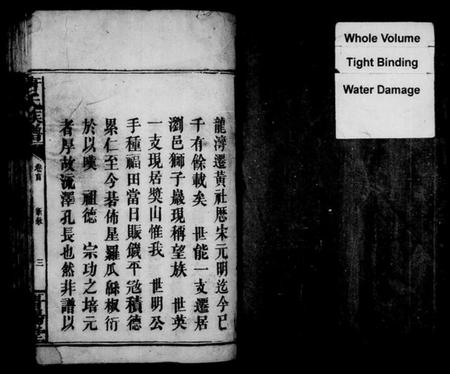 龍濠遷黃社歷宋元明迄今已
千有餘載矣 世能一支遷居
瀏邑獅子巖現稱望族 世英
一支現居獎山惟我 世明公
手種福田當日賑饑平寇積德
累仁至今碁佈星羅瓜緜椒衍
於以嘆 祖德 宗功之培元
者厚故流澤孔長也然非譜以
卷首
三
Whole Volume
Tight Binding
Water Damage